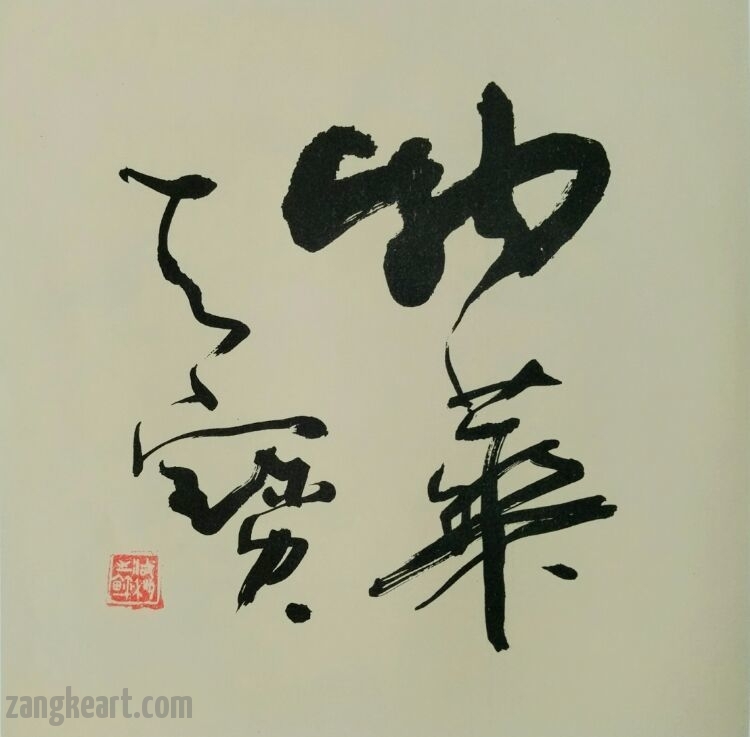 物華
天寳
zangkeart.com